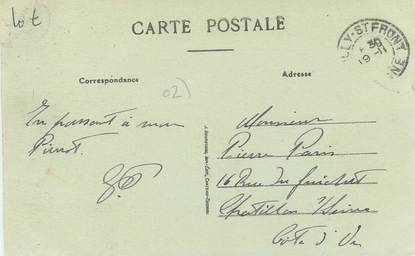 Lot
CARTE POSTALE
LLY-ST FRONT
19
Correspondance
Adresse
02)
En passant à mon
Pierrot.
Monsieur
Pierre Paris
16 Rue du Guichet
Chatillon s/Seine
Côte d'Or